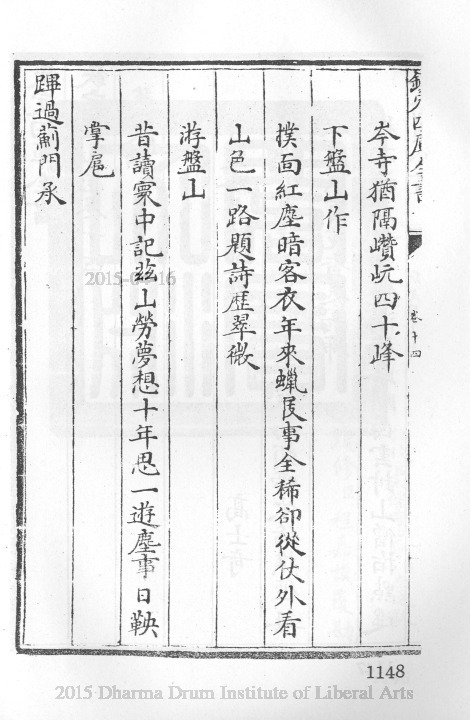 欽定四庫全書
卷十四
岑寺猶隔巑岏四十峰
下盤山作
撲面紅塵暗客衣年來蠟屐事全稀卻從仗外看
山色一路題詩歷翠微
游盤山
昔讀寰中記茲山勞夢想十年思一遊塵事日鞅
掌扈
蹕過薊門承
1148
2015-04-16
2015 Dharma Drum Institute of Liberal Arts